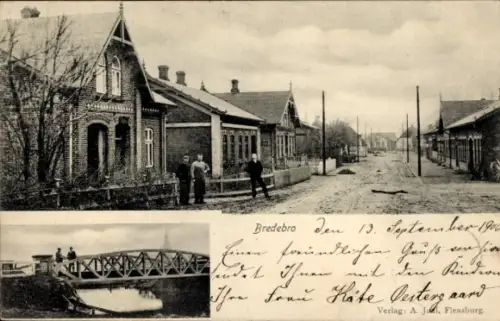 Bredebro
den 13. September 190
Einen freundlichen Gruß von hier
sendet Ihnen mit den Kindern
Ihre Frau Käte Oestergaard
Verlag: A. Juhl, Flensburg.